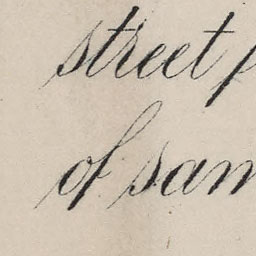 street
of sam